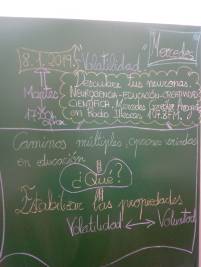 8.1.2019. "Volatilidad" Mercedes
Martes Descubre tus neuronas.
NEUROCIENCIA-EDUCACIÓN-CREATIVIDAD
17:30h CIENTÍFICA. Mercedes
en Radio Illescas
Caminos múltiples, opciones variadas
en educación
¿Qué?
Estabilizar las propiedades
Volatilidad ↔ Voluntad